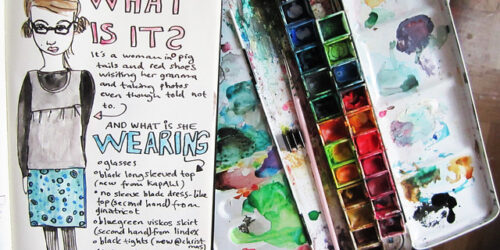 WHAT
IS IT?
It's a woman in pig
tails and red shoes
visiting her granma
and taking photos
even though told not
to.
AND WHAT IS SHE
WEARING
o glasses
o black longsleeved top
(new from KapAhl)
o no sleeve black dress-like
top (second hand) from
ginatricot
o bluegreen viskos skirt
(second hand) from lindex
o black tights (new @christ
mas)